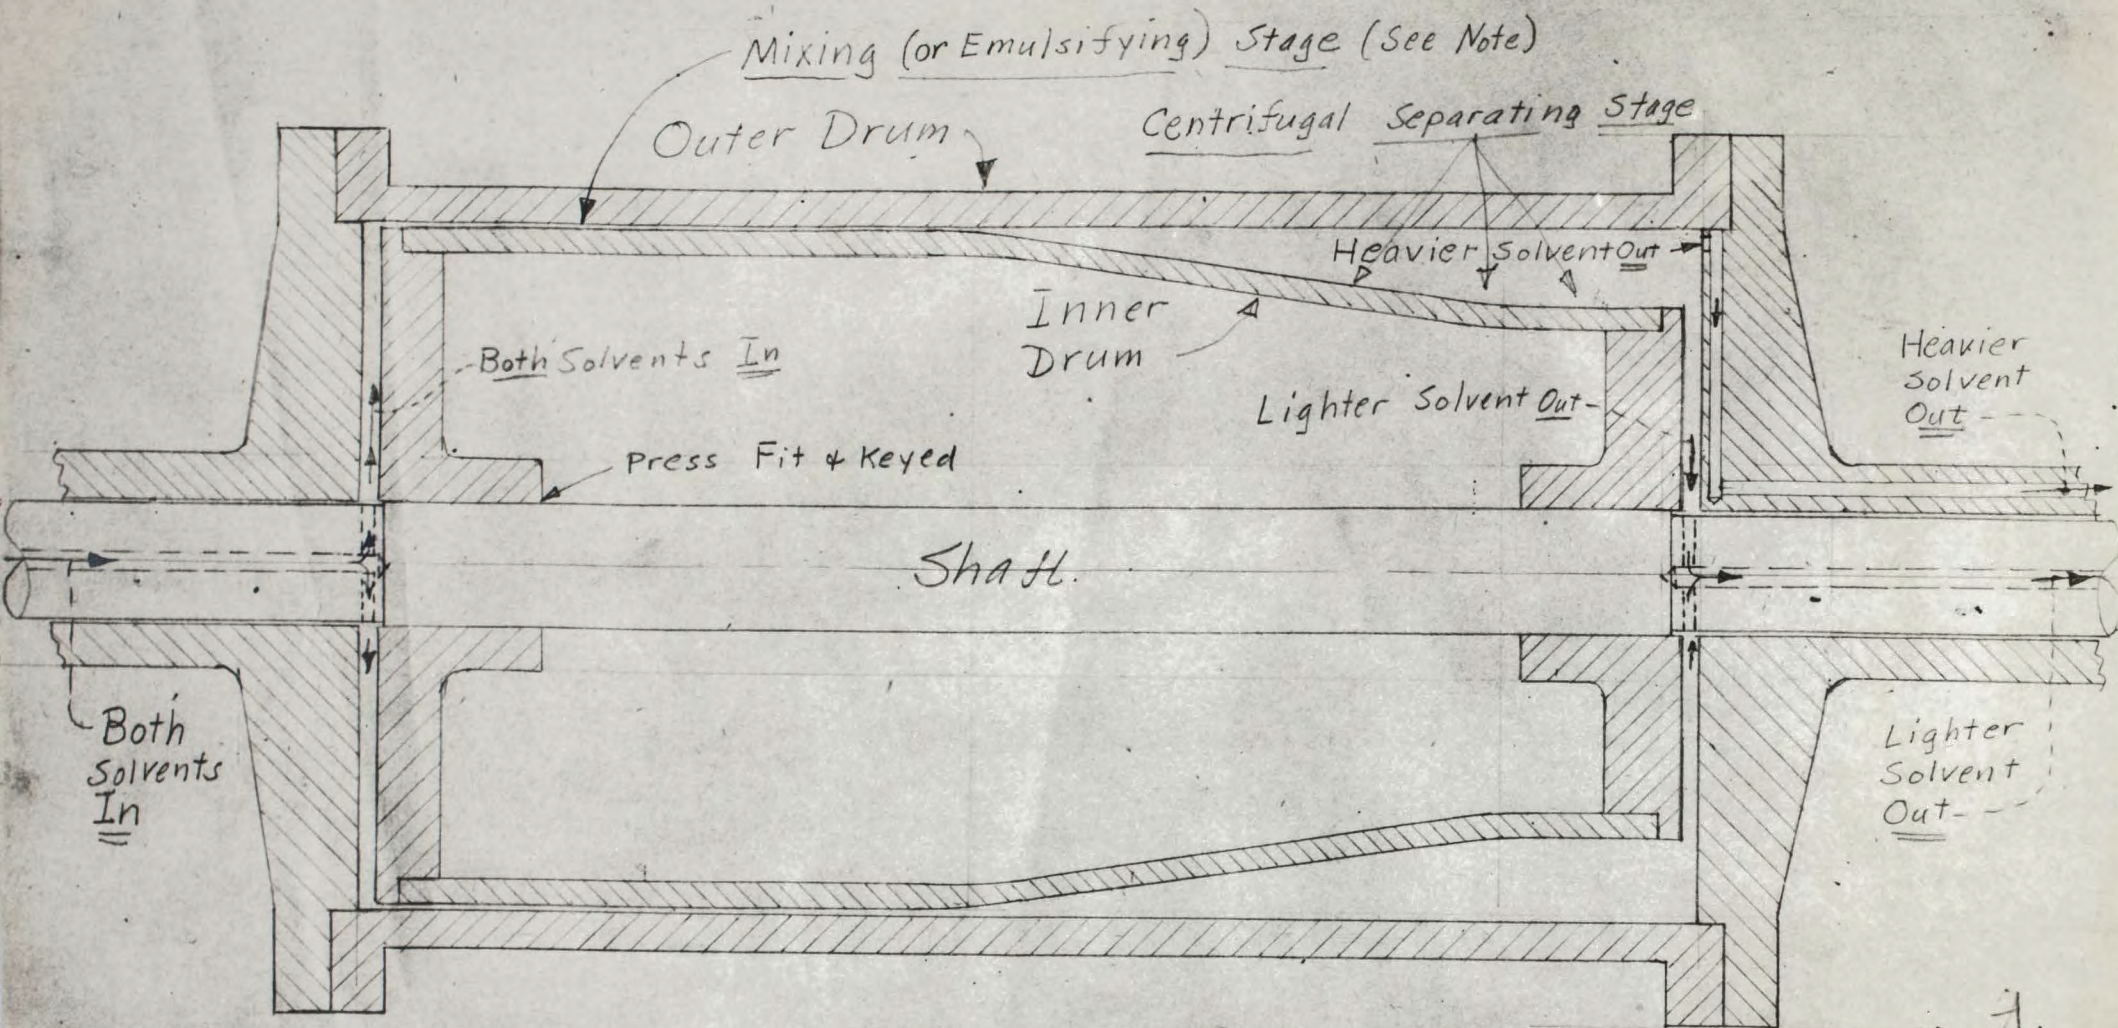 Mixing (or Emulsifying) Stage (See Note)
Outer Drum
Centrifugal Separating Stage
Heavier Solvent Out
Inner
Drum
Both Solvents In
Lighter Solvent Out
Heavier
Solvent
Out
Press Fit & Keyed
Shaft.
Both
Solvents
In
Lighter
Solvent
Out